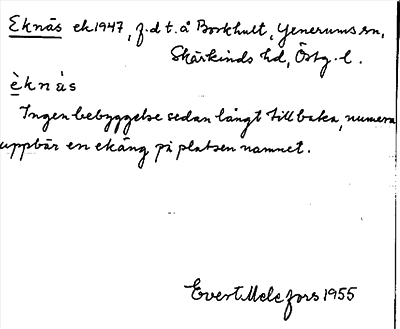 Eknäs ek 1947, f.d t. å Borkhult, Yxnerums sn,
Skärkinds hd, Östg. l.
èknàs
Ingen bebyggelse sedan långt tillbaka, numera
uppbär en ekäng på platsen namnet.
Evert Melefors 1955